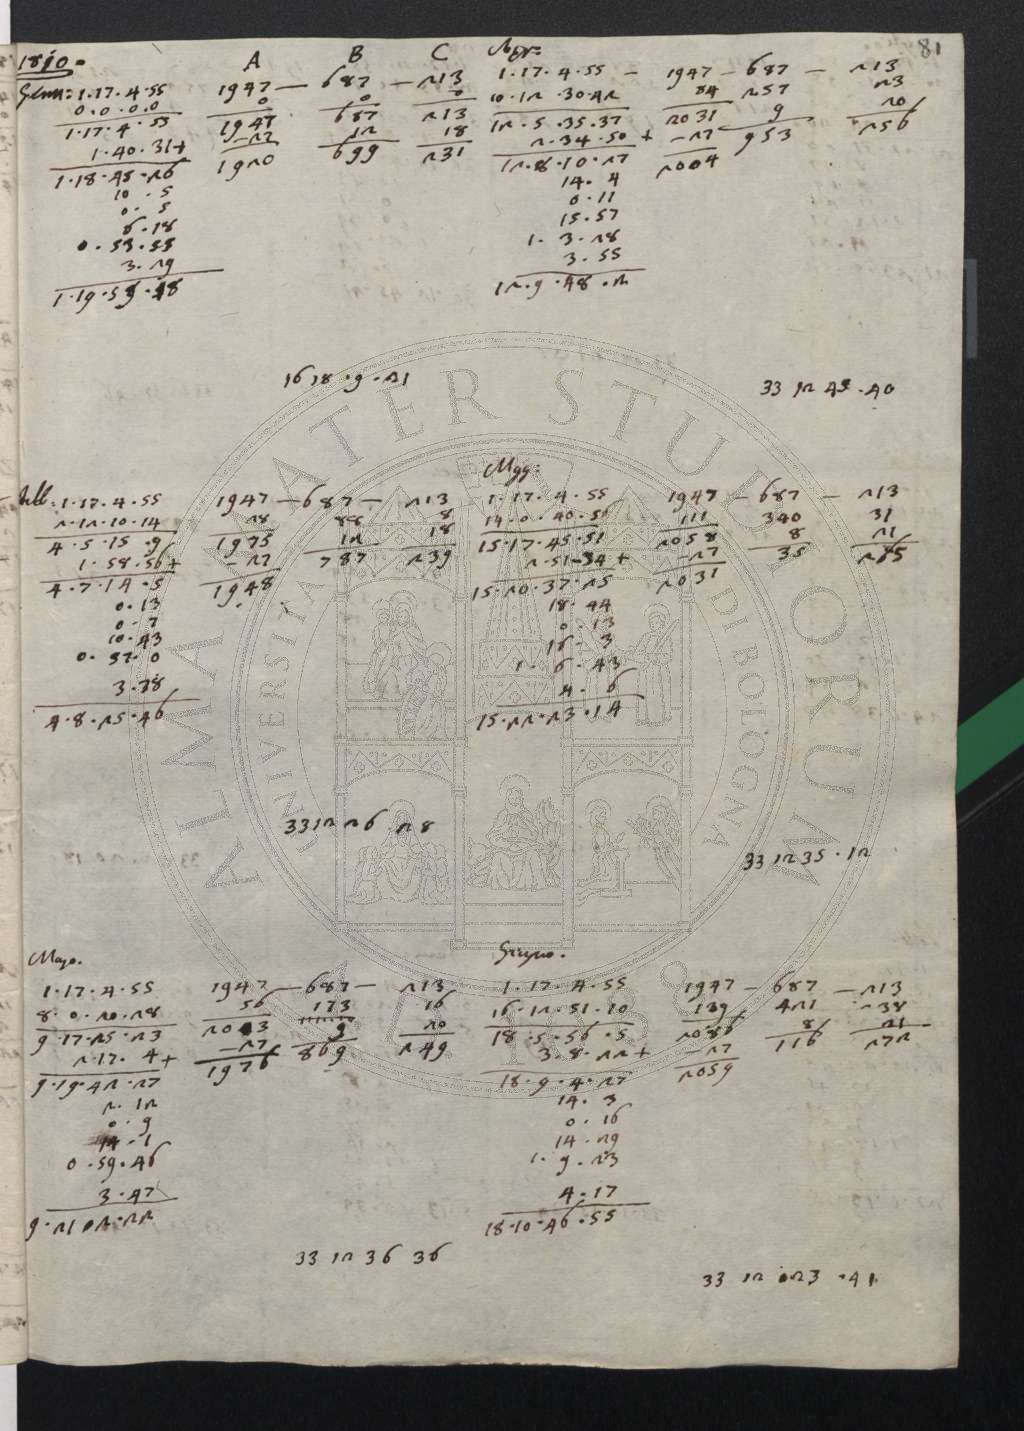 81
1810. A B C
Genn: 1.17.4.55 1947 — 687 — 213
0.0.0.0 0 0 0
1.17.4.55 1947 687 213
1.40.31+ -27 12 18
1.18.45.26 1920 699 231
10.5
0.5
6.18
0.53.55
3.29
1.19.59.18
16 18.9.21
Apr:
1.17.4.55 — 1947 — 687 — 213
10.12.30.42 84 257 23
12.5.35.37 2031 9 20
2.34.50+ -27 953 256
12.8.10.27 2004
14.4
0.11
15.57
1.3.28
3.55
12.9.48.2
33 12 45.40
Febb: 1.17.4.55 1947 — 687 — 213
2.12.10.14 28 88 8
4.5.15.9 1975 12 18
1.58.56+ -27 787 239
4.7.14.5 1948
0.13
0.7
10.43
0.57.0
3.38
4.8.25.46
33 12 26.28
Mgg:
1.17.4.55 1947 — 687 — 213
14.0.40.56 111 340 31
15.17.45.51 2058 8 21
2.51.34+ -27 35 265
15.20.37.25 2031
18.44
0.13
16.3
1.6.43
4.6
15.22.23.14
33 12 35.12
Marzo.
1.17.4.55 1947 — 687 — 213
8.0.20.28 56 173 16
9.17.25.23 2003 9 20
2.17.4+ -27 869 249
9.19.42.27 1976
2.12
0.9
14.1
0.59.46
3.47
9.21.2.22
33 12 36 36
Giugno.
1.17.4.55 1947 — 687 — 213
16.12.51.10 139 421 38
18.5.56.5 2086 8 21
3.8.22+ -27 116 272
18.9.4.27 2059
14.3
0.16
14.29
1.9.23
4.17
18.10.46.55
33 12 23.41
ALMA MATER STUDIORUM
UNIVERSITÀ DI BOLOGNA